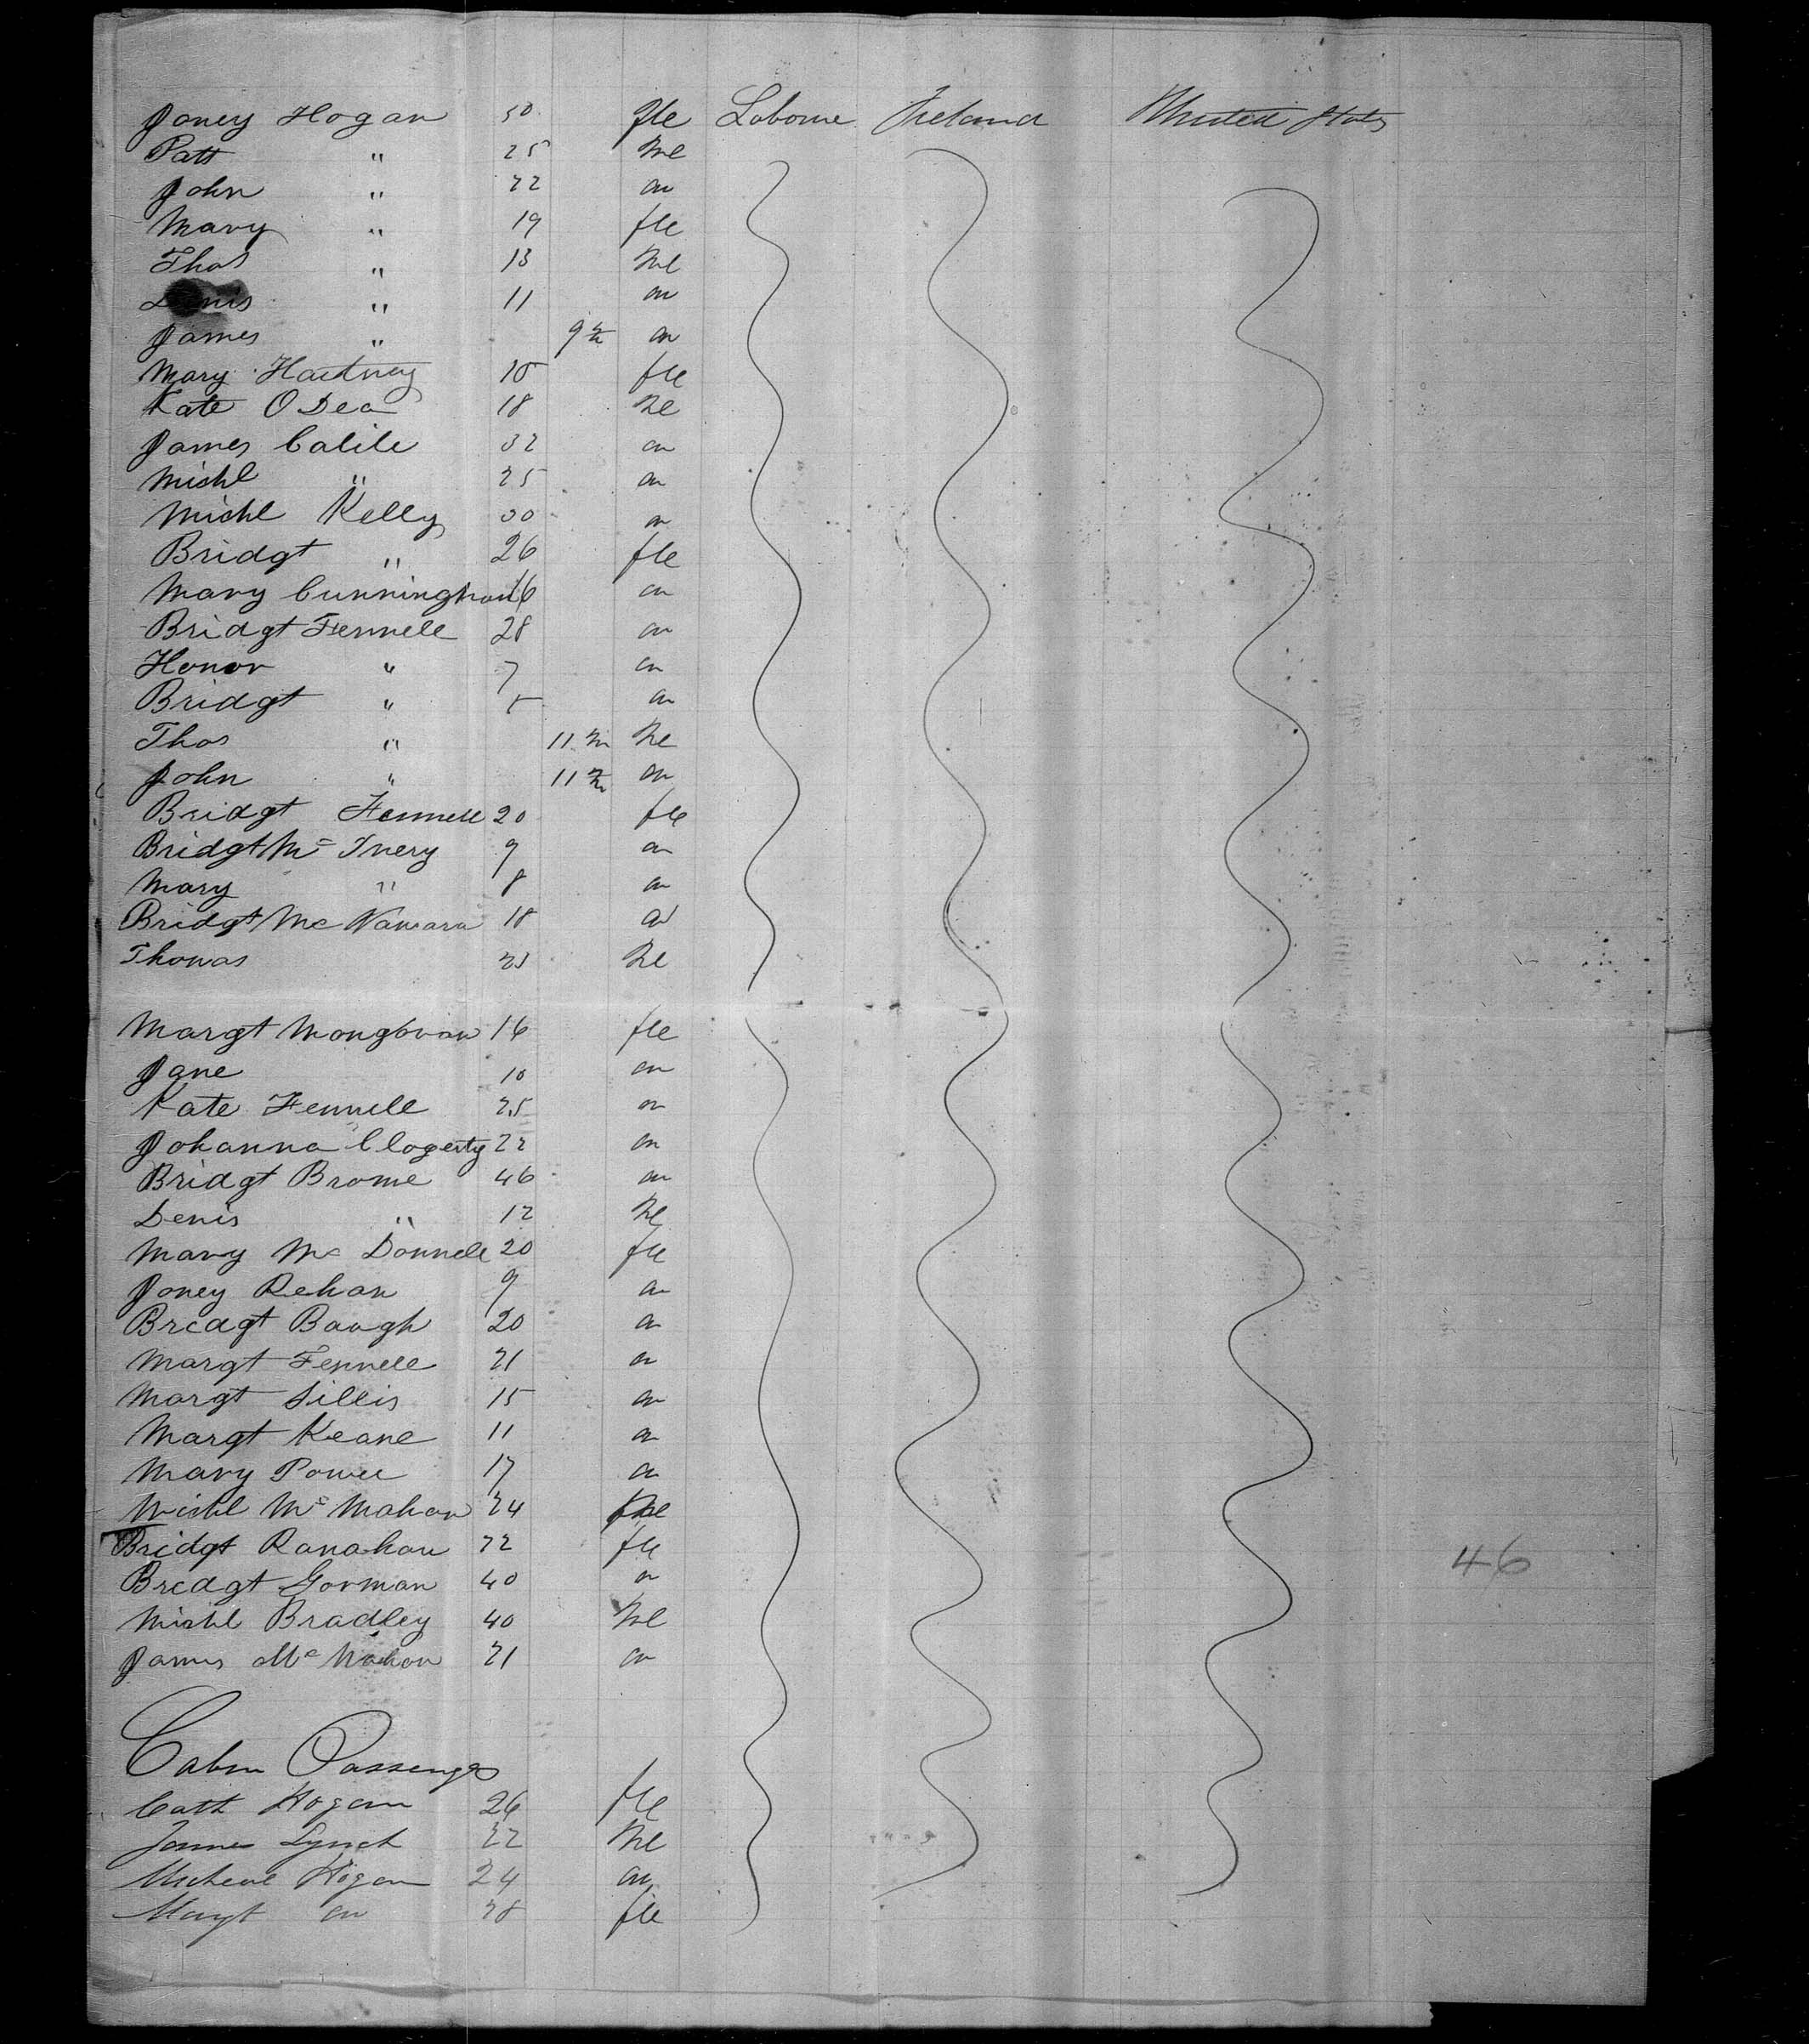 Joney Hogan 50 fle Laborer Ireland United States
Patt " 25 Ml
John " 22 "
Mary " 19 fle
Thos " 13 Ml
Denis " 11 "
James " 9 m "
Mary Hartney 18 fle
Kate O Dea 18 Ml
James Calill 32 "
Michl " 25 "
Michl Kelly 30 "
Bridgt " 26 fle
Mary Cunningham 16 "
Bridgt Fennell 28 "
Honor " 7 "
Bridgt " 5 "
Thos " 11 m Ml
John " 11 m "
Bridgt Fennell 20 fle
Bridgt Mc Inery 9 "
Mary " 8 "
Bridgt Mc Namara 18 "
Thomas 23 Ml
Margt Mongovan 16 fle
Jane 10 "
Kate Fennell 25 "
Johanna Clogerty 22 "
Bridgt Browne 46 "
Denis " 12 Ml
Mary Mc Donnell 20 fle
Joney Rehan 9 "
Bridgt Baugh 20 "
Margt Fennell 21 "
Margt Lillis 15 "
Margt Keane 11 "
Mary Power 17 "
Michl Mc Mahon 24 Ml
Bridgt Ranahan 22 fle
Bridgt Gorman 40 "
46
Michl Bradley 40 Ml
James Mc Mahon 21 "
Cabin Passengs
Cath Hogan 26 fle
James Lynch 22 Ml
Micheal Hogan 24 "
Margt " 28 fle